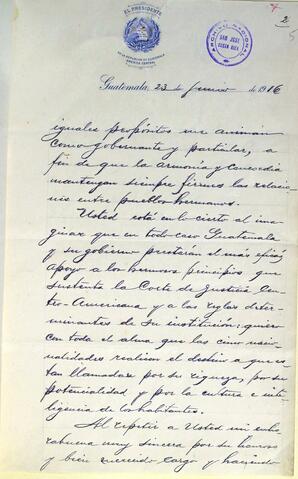 EL PRESIDENTE
DE LA REPUBLICA DE GUATEMALA
AMERICA CENTRAL
ARCHIVO NACIONAL
SAN JOSE
COSTA RICA
2
Guatemala, 23 de Junio de 1916
iguales propósitos me animan
como gobernante y particular, a
fin de que la armonía y concordia
mantengan siempre firmes las relacio
nes entre pueblos hermanos.
Usted está en lo cierto al ima
ginar que en todo caso Guatemala
y su gobierno prestarán el más eficáz
apoyo a los hermosos principios que
sustenta la Corte de Justicia Cen
tro-Americana y a las reglas deter-
minantes de su institución; quiero
con toda el alma que las cinco nacio
nalidades realicen el destino a que es
tan llamadas por su riqueza, por su
potencialidad y por la cultura e inte
ligencia de sus habitantes.
Al repetir a Usted mi enho
rabuena muy sincera por su honroso
y bien merecido cargo y haciendo